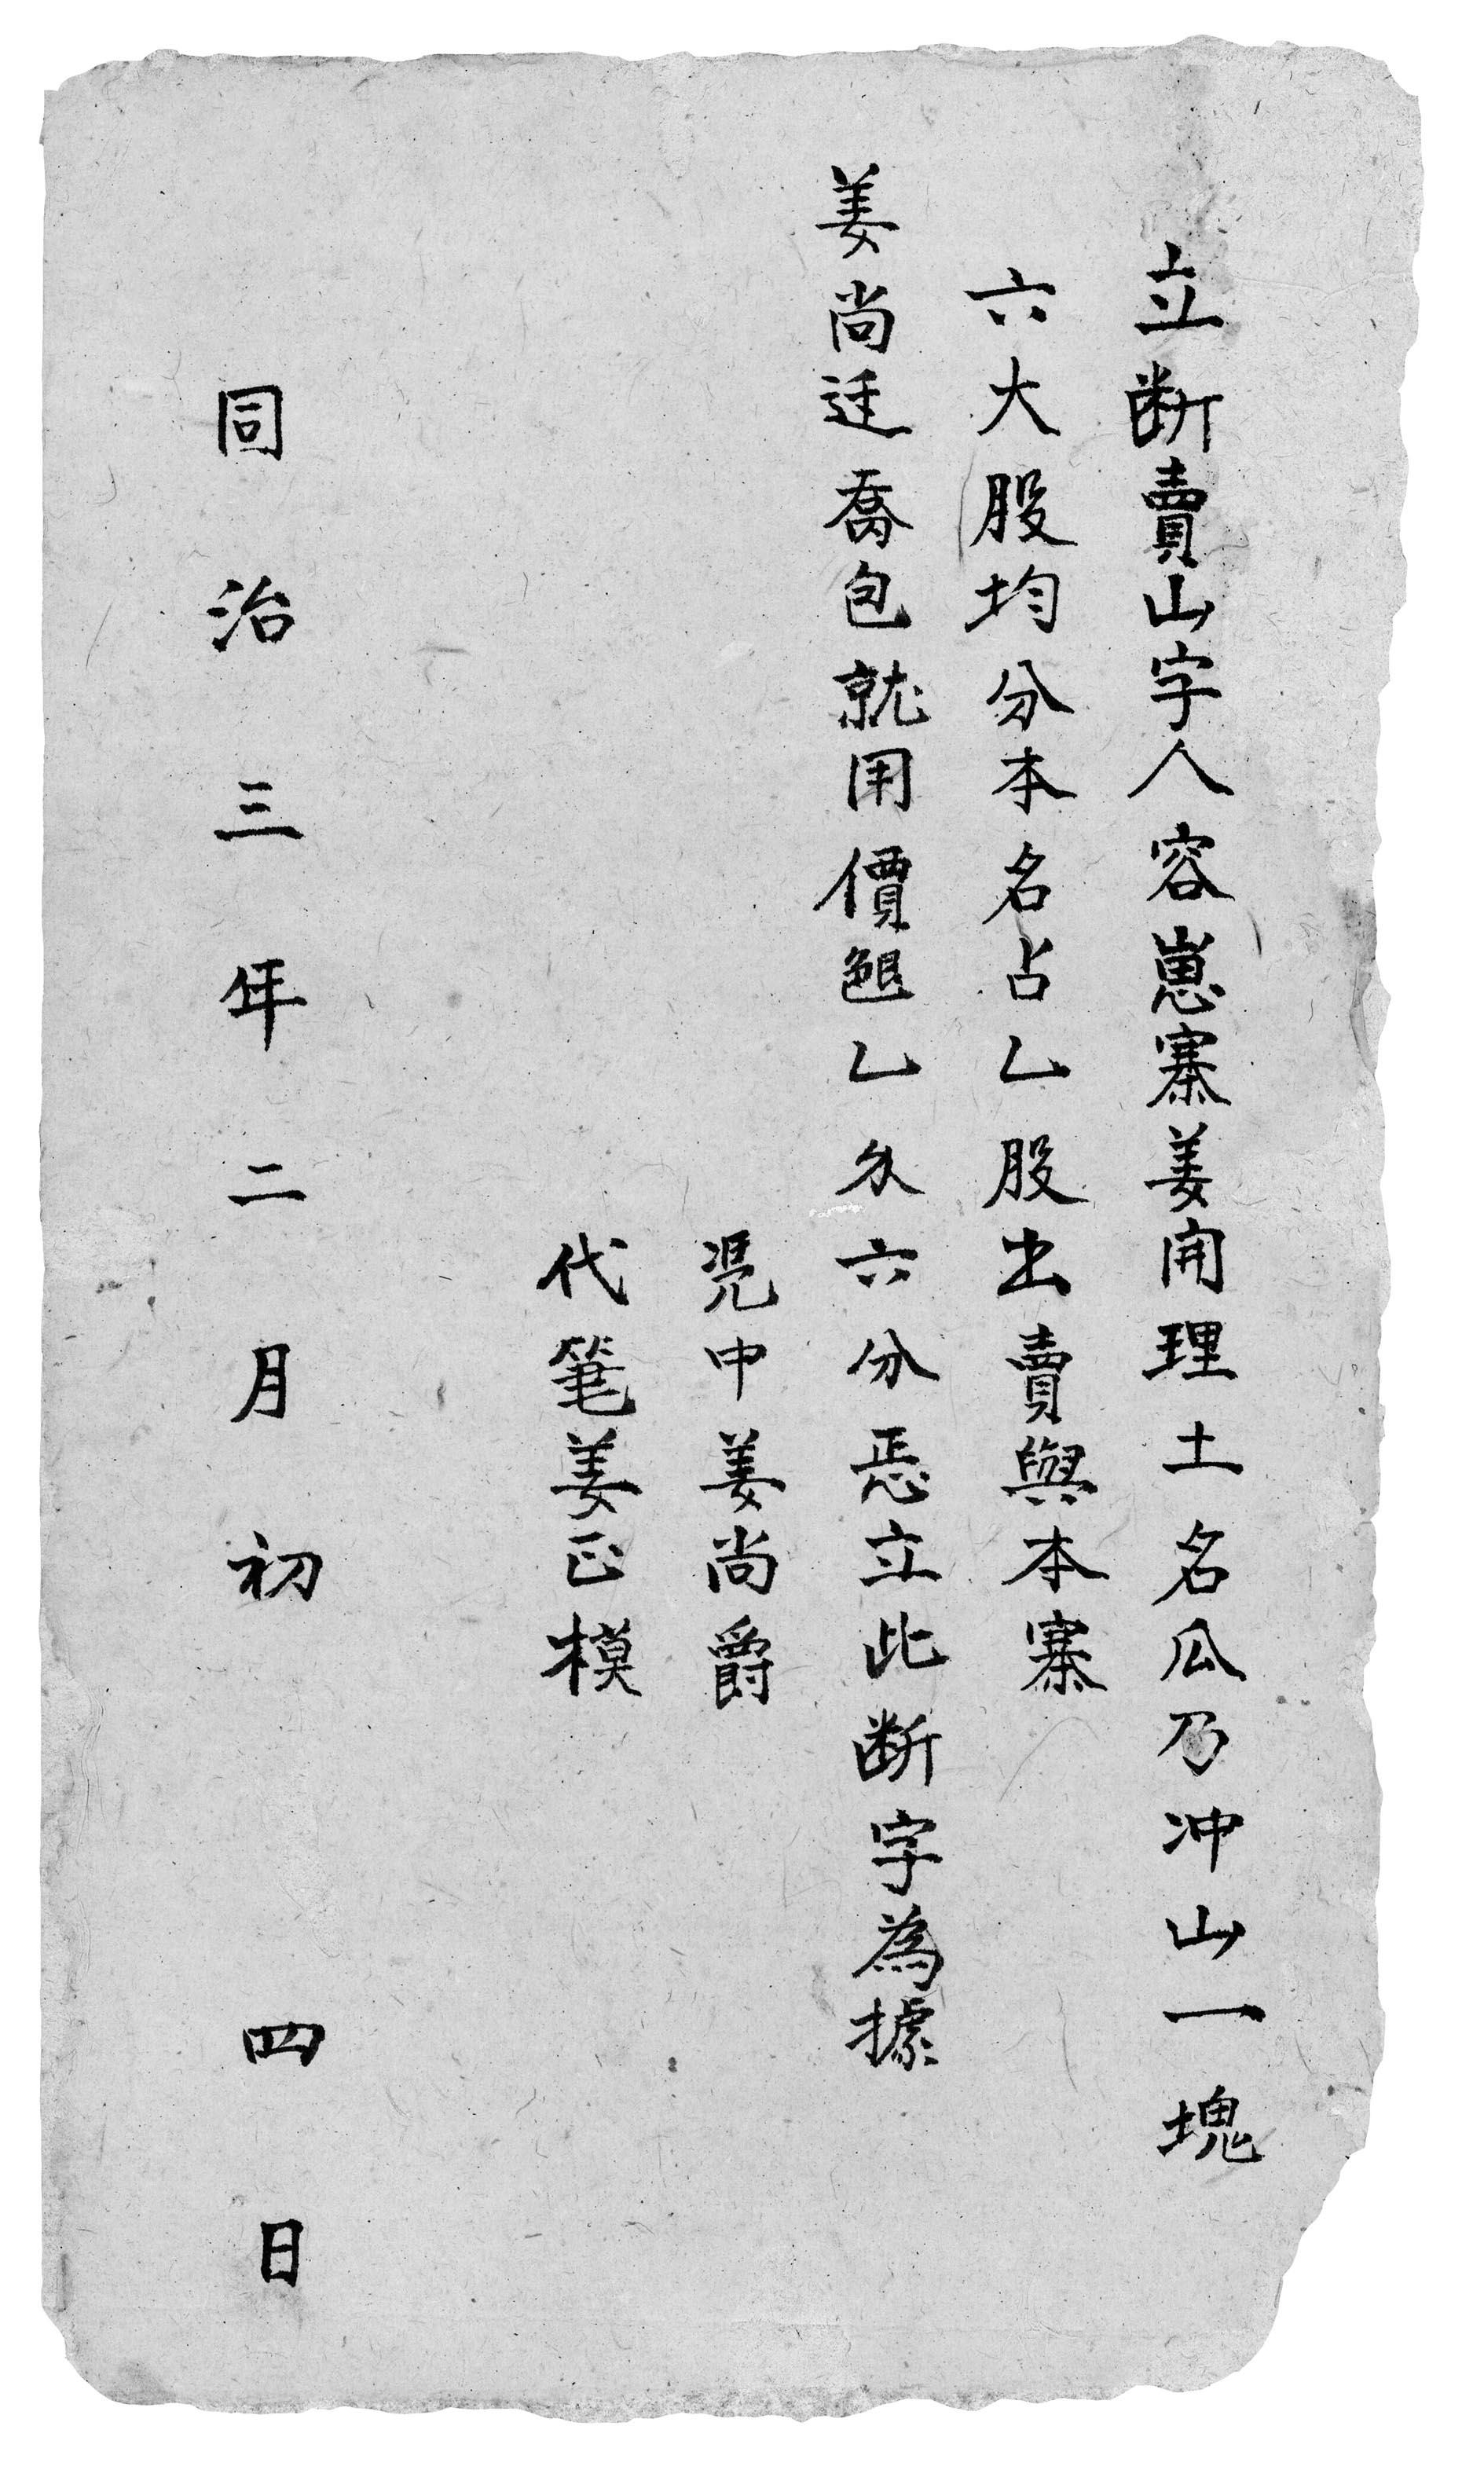 立断賣山字人容崽寨姜開理土名瓜乃冲山一塊
六大股均分本名占乚股出賣與本寨
姜尚廷喬包就用價乚分六分恐立此断字為據
凴中姜尚爵
代筆姜正模
同治三年二月初四日